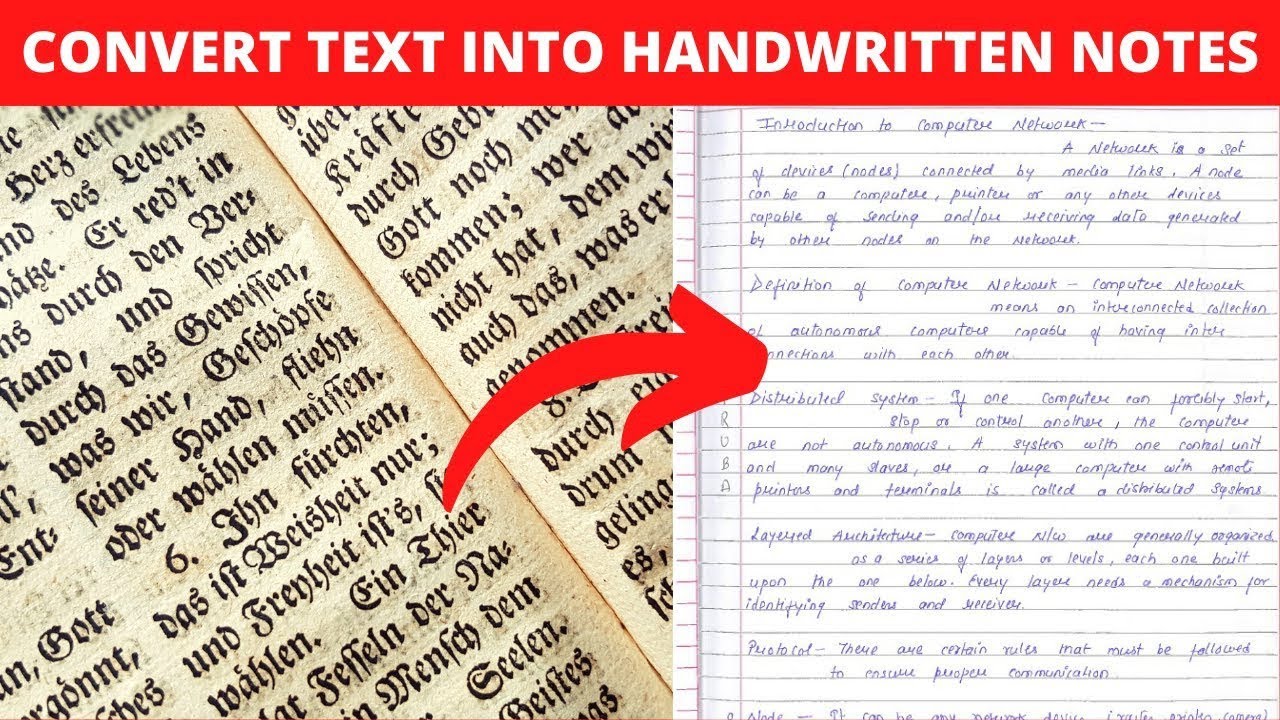 CONVERT TEXT INTO HANDWRITTEN NOTES
Herz erfreun
und des Lebens
hätze. Er red't in
ns durch den Ver-
stand, und spricht
durch das Gewissen,
was wir, Geschöpfe
seiner Hand, fliehn
oder wählen müssen.
6. Ihn fürchten,
das ist Weisheit nur;
und Freyheit ist's,
wählen. Ein Thier
ar Fesseln der Na-
in Mensch dem
Seelen.
Geistes
Ent-
Gott
gönnt,
ches
über
Kräfte
durch Gebr
Gott noch me
kommen; wer
nicht hat, dem wir
auch das, was er
genommen.
8.
durch
drum
geling
es,
Introduction to Computer Network-
A Network is a set
of devices (nodes) conneced by media links. A node
can be a computer, printer or any other devices
capable of sending and/or receiving data generated
by other nodes on the Network.
Definition of Computer Network - Computer Network
means an interconnected collection
of autonomous computers capable of having inter
nnections with each other.
Distributed system - If one computer can forcibly start,
stop or control another the computers
are not autonomous. A system with one control unit
and many slaves, or a large computer with remote
printers and terminals is called a distributed systems
R
U
B
A
Layered Architecture - Computer N/w are generally organized
as a series of layers or levels, each one built
upon the one below. Every layer needs a mechanism for
identifying senders and receiver.
Protocol - There are certain rules that must be followed
to ensure proper communication.
Node - It can be any network device